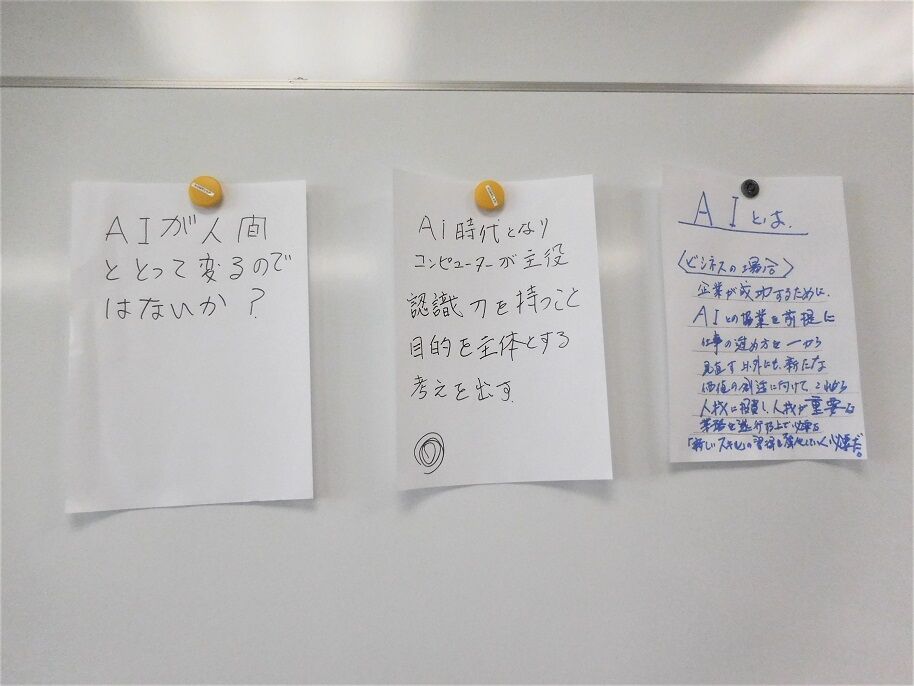 AIが人間
ととって変るので
はないか?
Ai時代となり
コンピューターが主役
認識力を持つこと
目的を主体とする
考えを出す
AIとは、
〈ビジネスの場合〉
企業が成功するために、
AIとの協業を前提に
仕事の進め方を一から
見直す以外にも、新たな
価値の創造に向けて、これから
人材に投資し、人材が重要な
業務を遂行する上で必要な
「新しいスキル」の習得を強化していく必要だ。